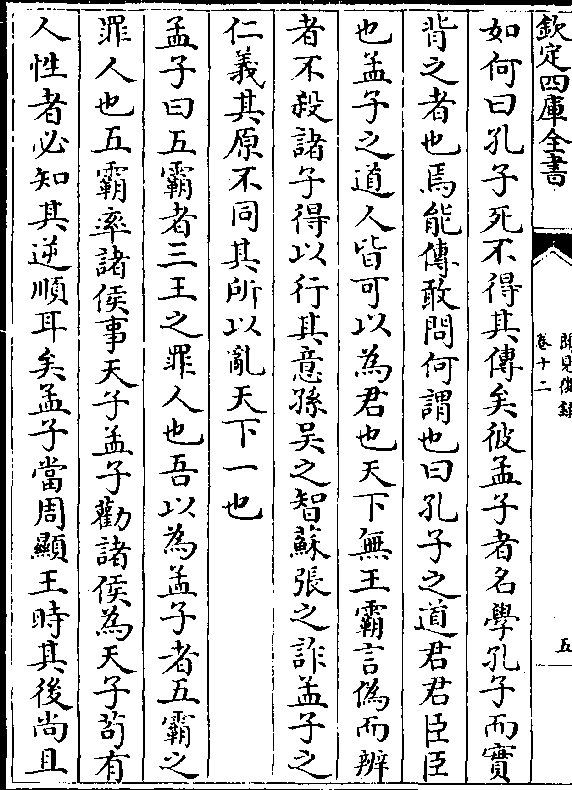 欽定四庫全書
聞見後錄
卷十二
五
如何曰孔子死不得其傳矣彼孟子者名學孔子而實
背之者也焉能傳敢問何謂也曰孔子之道君君臣臣
也孟子之道人皆可以為君也天下無王霸言偽而辨
者不殺諸子得以行其意孫吳之智蘇張之詐孟子之
仁義其原不同其所以亂天下一也
孟子曰五霸者三王之罪人也吾以為孟子者五霸之
罪人也五霸率諸侯事天子孟子勸諸侯為天子苟有
人性者必知其逆順耳矣孟子當周顯王時其後尚且